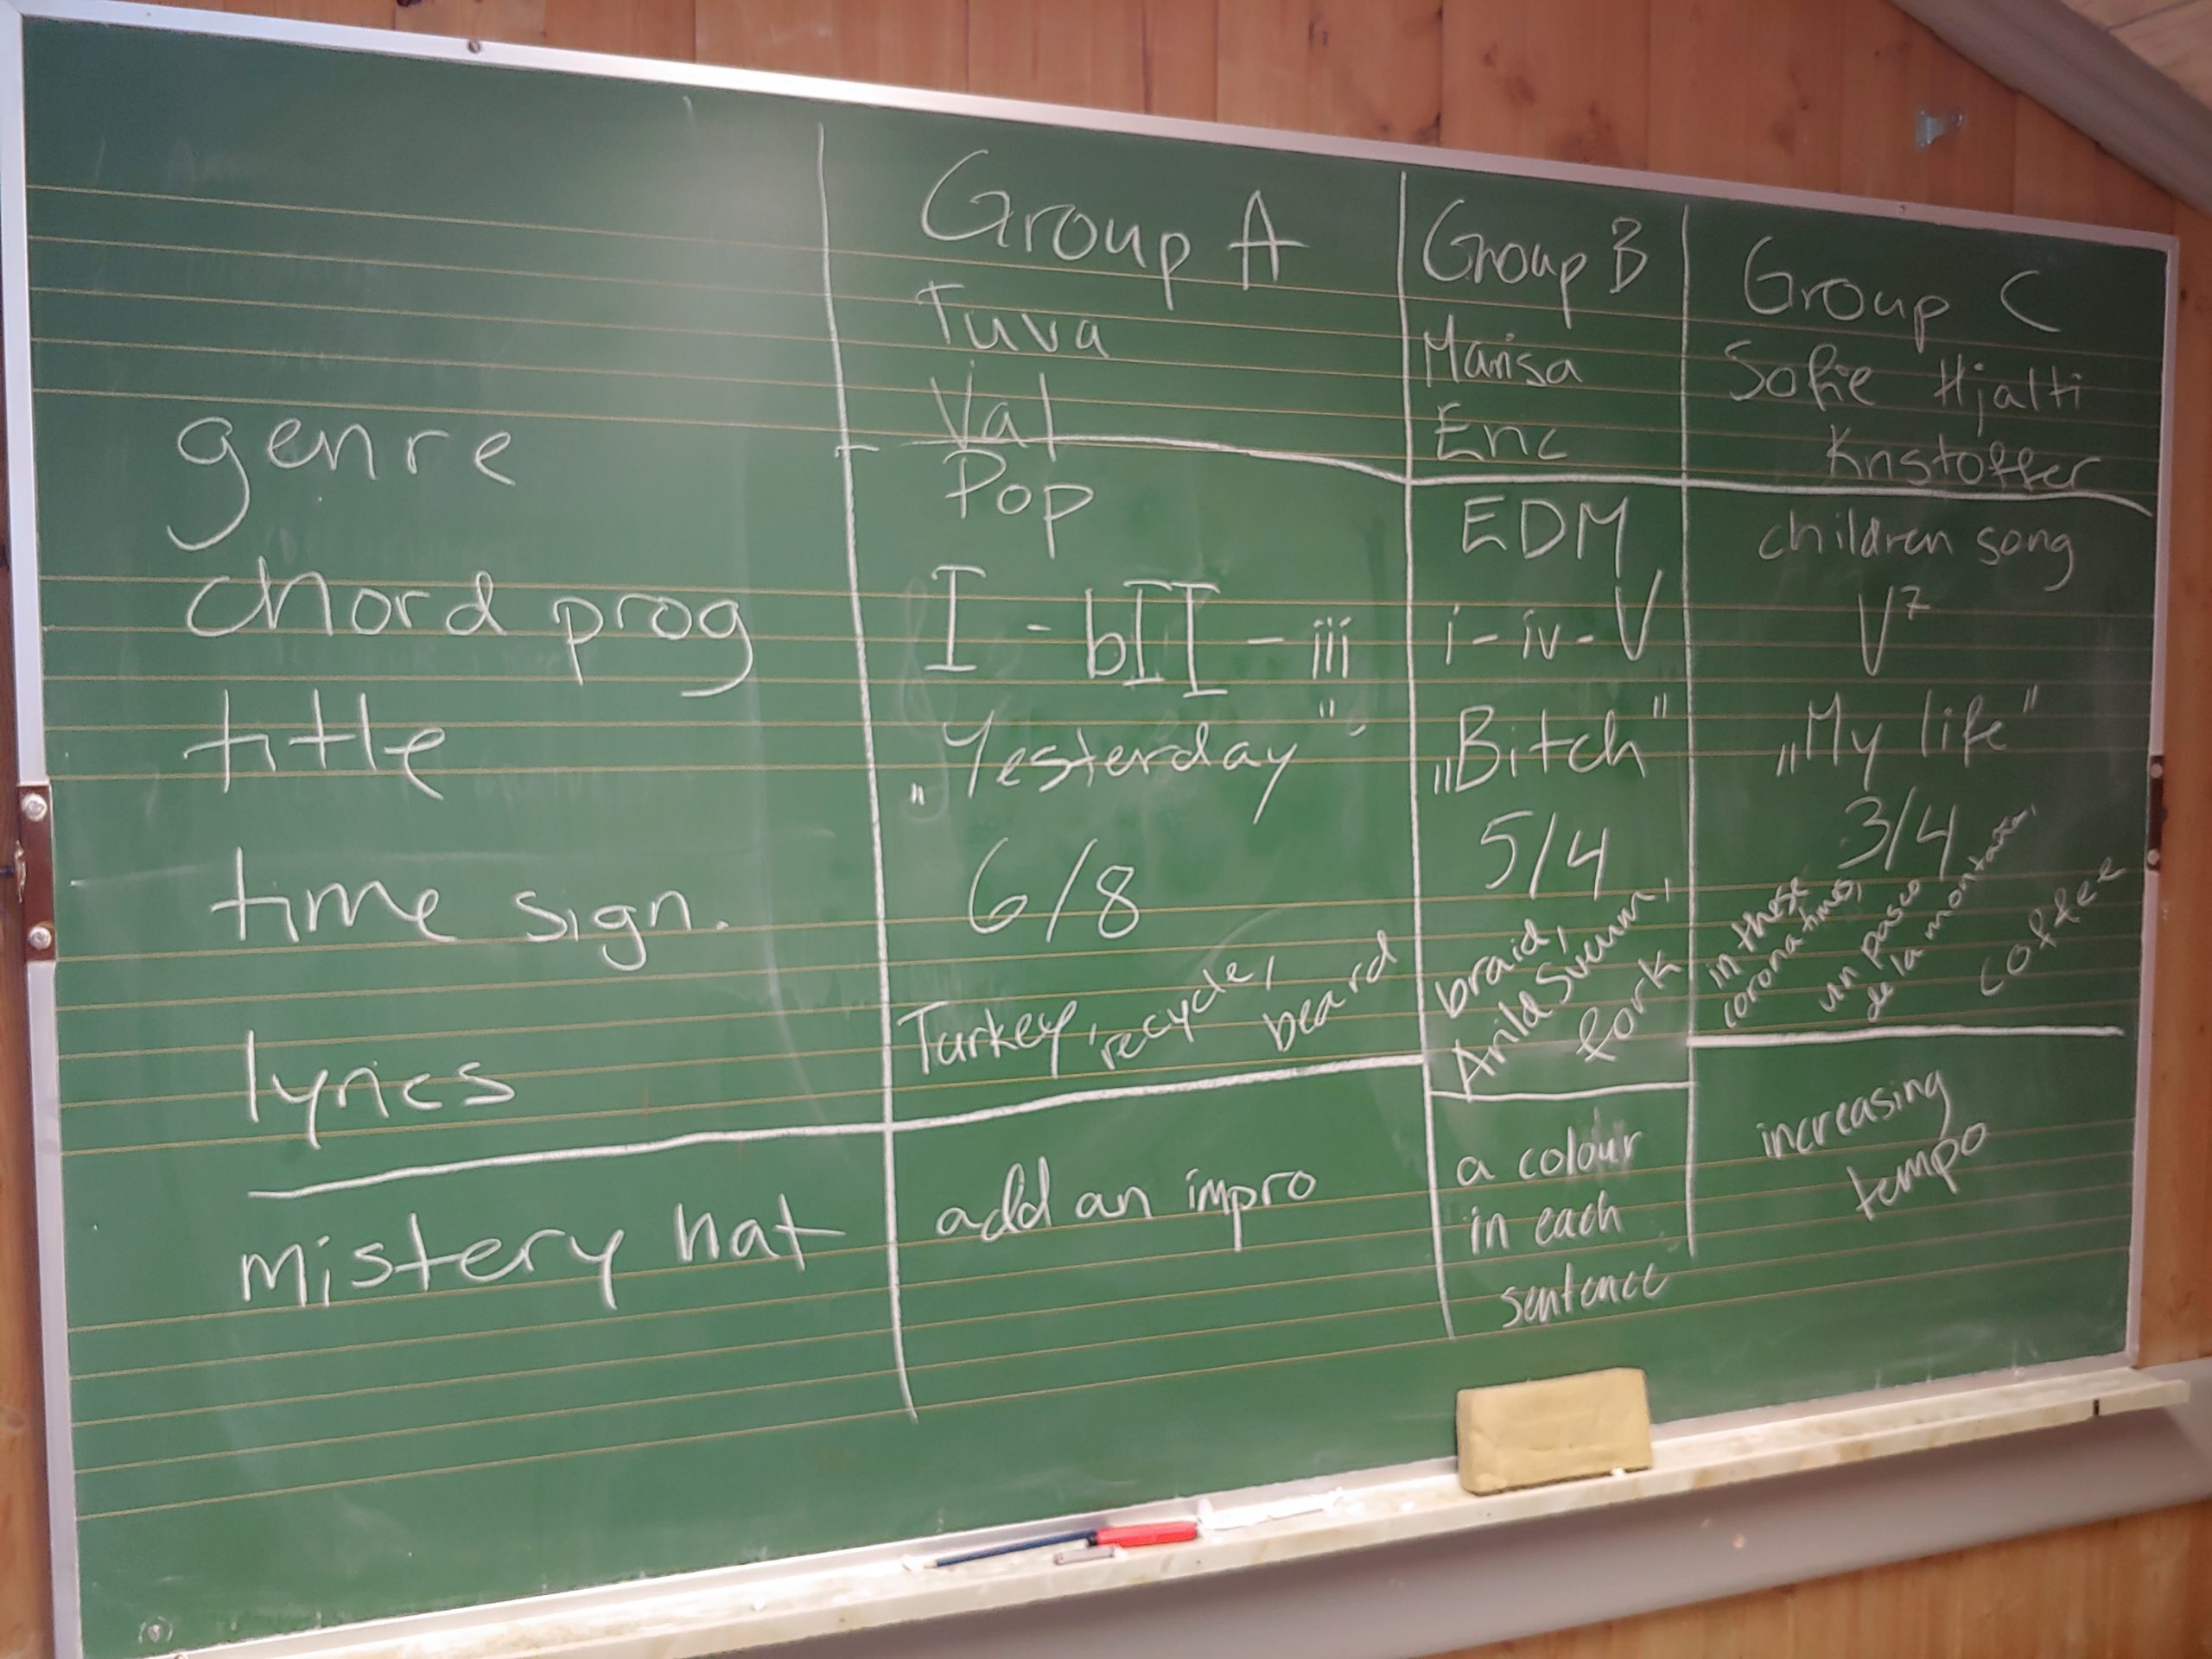 Group A
Tuva
Val
Group B
Marisa
Eric
Group C
Sofie Hjalti
Kristoffer
genre
Pop
EDM
children song
chord prog
I - bII - iii
i - iv - V
V7
title
„Yesterday"
„Bitch"
„My life"
time sign.
6/8
5/4
3/4
lyrics
Turkey, recycle,
beard
braid,
Arild Svennum,
fork
in these
corona times,
un paseo
de la montaña,
coffee
mistery hat
add an impro
a colour
in each
sentence
increasing
tempo